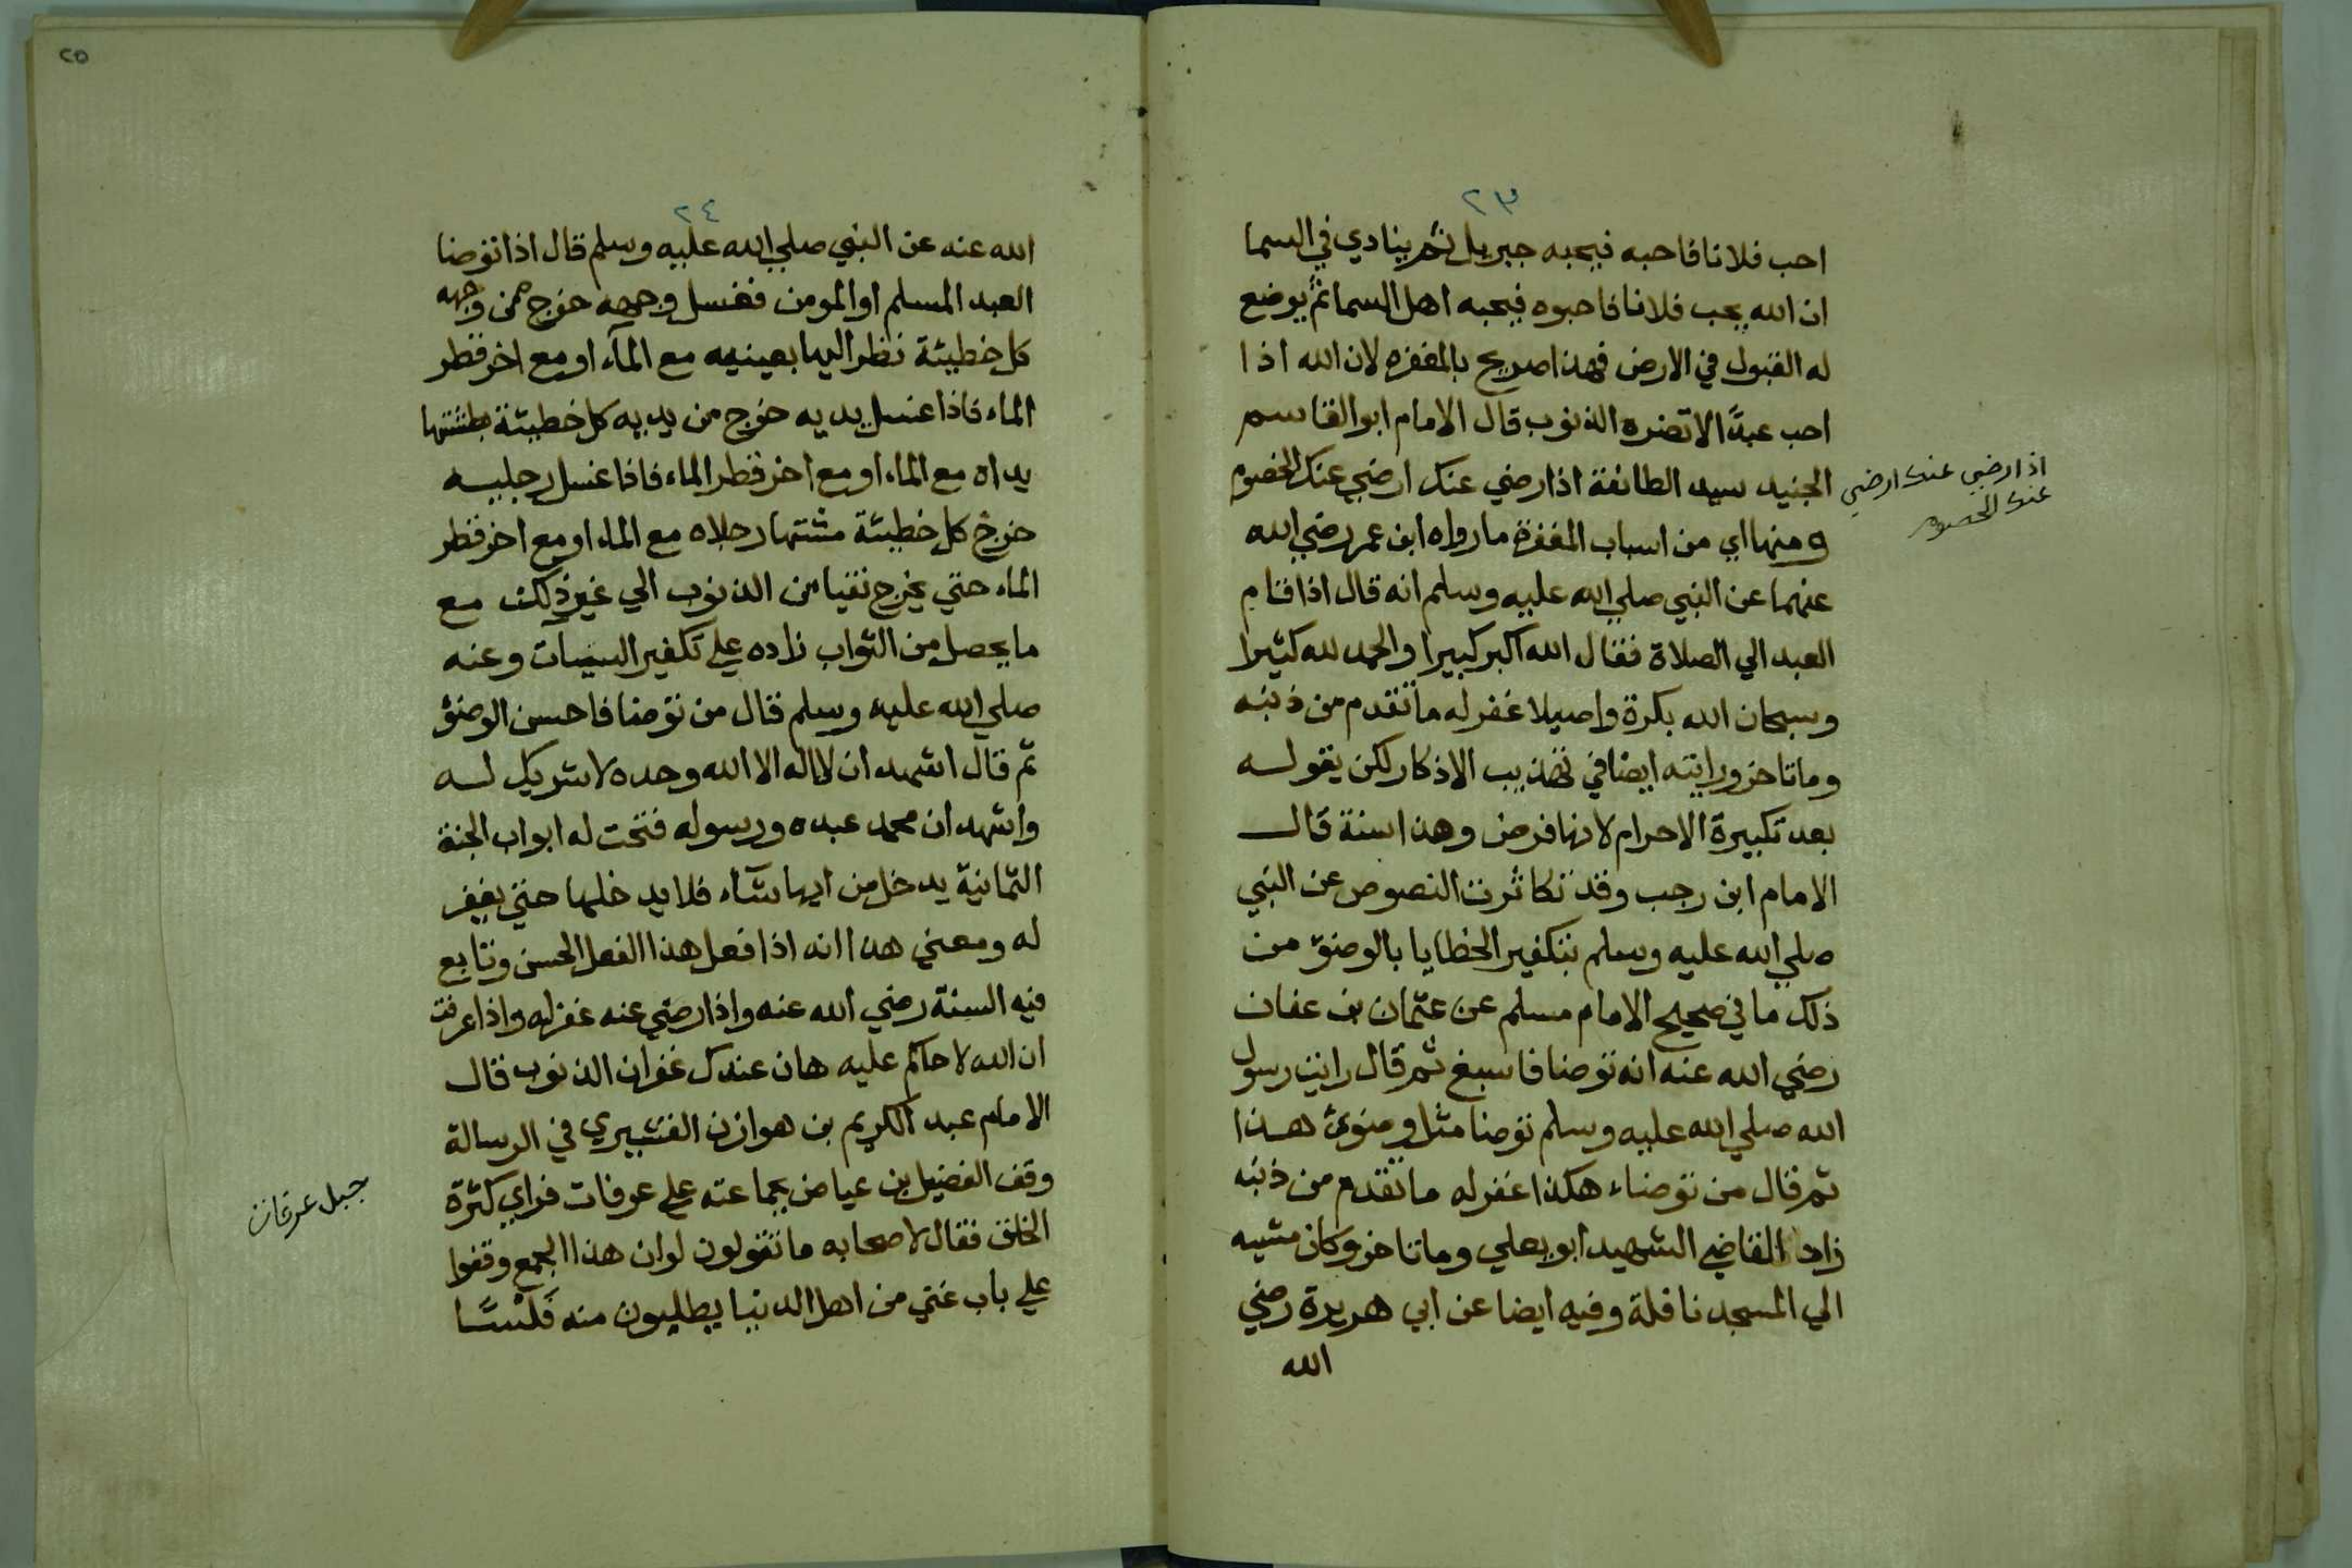 ٢٣
احب فلانا فاحبه فيحبه جبريل ثم ينادي في السما
ان الله يحب فلانا فاحبوه فيحبه اهل السما ثم يوضع
له القبول في الارض فهذا صريح بالمغفره لان الله اذا
احب عبدًا لا تضره الذنوب قال الامام ابو القاسم
الجنيد سيد الطائفة اذا رضي عنك ارضي عنك الخصوم
ومنها اي من اسباب المغفرة ما رواه ابن عمر رضي الله
عنهما عن النبي صلي الله عليه وسلم انه قال اذا قام
العبد الي الصلاة فقال الله اكبر كبيرا والحمد لله كثيرا
وسبحان الله بكرة واصيلا غفر له ما تقدم من ذنبه
وما تاخر ورايته ايضا في تهذيب الاذكار لكن يقوله
بعد تكبيرة الاحرام لانها فرض وهذا سنة قال
الامام ابن رجب وقد تكاثرت النصوص عن النبي
صلي الله عليه وسلم بتكفير الخطايا بالوضوء من
ذلك ما في صحيح الامام مسلم عن عثمان بن عفان
رضي الله عنه انه توضا فاسبغ ثم قال رايت رسول
الله صلي الله عليه وسلم توضا مثل وضوئ هذا
ثم قال من توضاء هكذا غفر له ما تقدم من ذنبه
زاد القاضي الشهيد ابو يعلي وما تاخر وكان مشيه
الي المسجد نافلة وفيه ايضا عن ابي هريرة رضي
الله
اذا رضي عنك ارضي
عنك الخصوم
٢٥
٢٤
الله عنه عن النبي صلي الله عليه وسلم قال اذا توضا
العبد المسلم او المومن فغسل وجهه خرج من وجهه
كل خطيئة نظر اليها بعينيه مع المآء او مع اخر قطر
الماء فاذا غسل يديه خرج من يديه كل خطيئة بطشتها
يداه مع الماء او مع اخر قطر الماء فاذا غسل رجليه
خرج كل خطيئة مشتها رجلاه مع الماء او مع اخر قطر
الماء حتي يخرج نقيا من الذنوب الي غير ذلك مع
ما يحصل من الثواب زاده علي تكفير السيات وعنه
صلي الله عليه وسلم قال من توضا فاحسن الوضؤ
ثم قال اشهد ان لا اله الا الله وحده لا شريك له
واشهد ان محمد عبده ورسوله فتحت له ابواب الجنة
الثمانية يدخل من ايها شآء فلا يدخلها حتي يغفر
له ومعني هذا انه اذا فعل هذا الفعل الحسن وتابع
فيه السنة رضي الله عنه واذا رضي عنه غفر له واذا عرفت
ان الله لا حاكم عليه هان عندك غفران الذنوب قال
الامام عبد الكريم بن هوازن القشيري في الرسالة
وقف الفضيل بن عياض بجماعته علي عرفات فراي كثرة
الخلق فقال لاصحابه ما تقولون لو ان هذا الجمع وقفوا
علي باب غني من اهل الدنيا يطلبون منه فَلْسًا
جبل عرفات